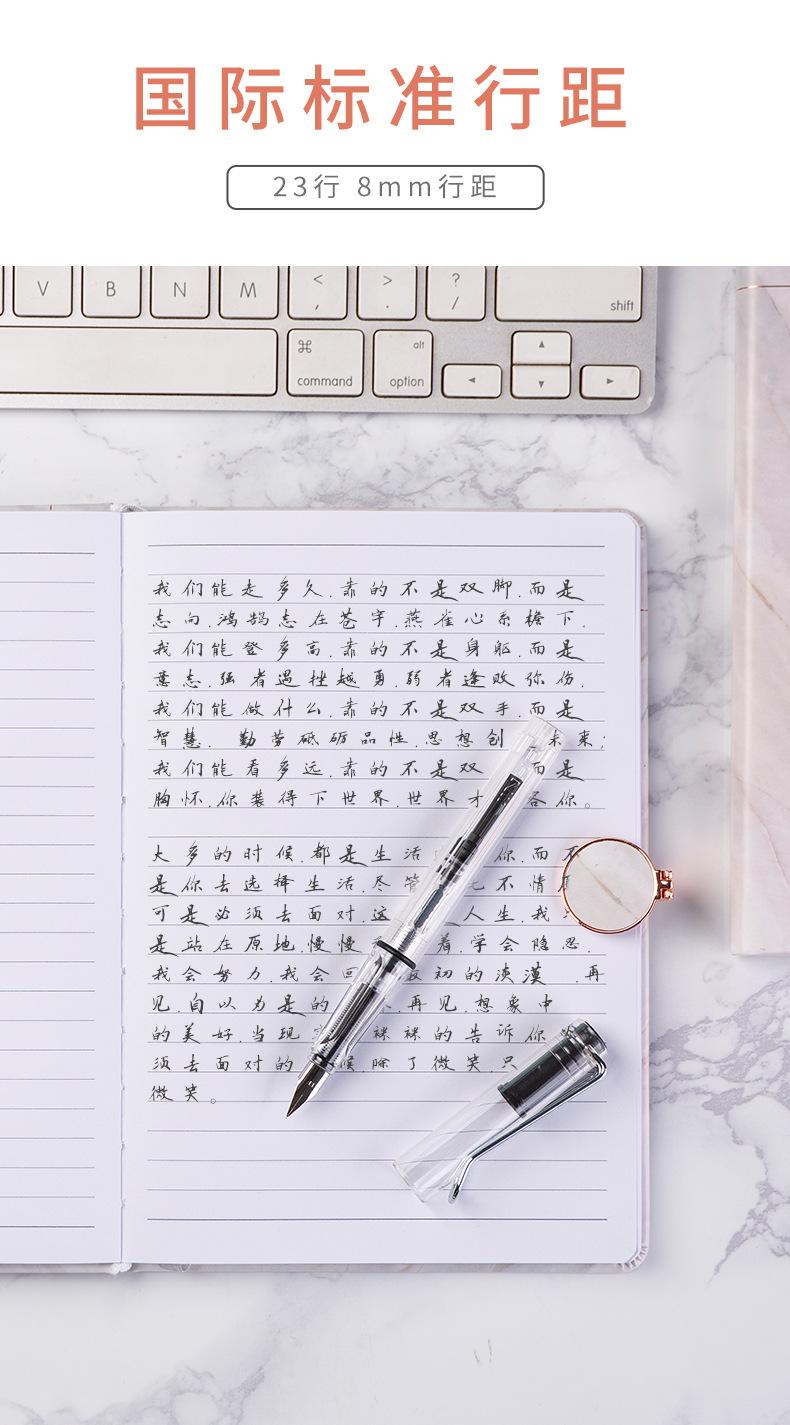 国际标准行距
23行 8mm行距
V B N M < , > . ? / shift
⌘ command alt option ◄ ▲ ▼ ►
我们能走多久.靠的不是双脚.而是
志向.鸿鹄志在苍宇.燕雀心系檐下.
我们能登多高.靠的不是身躯.而是
意志.强者遇挫越勇.弱者逢败弥伤.
我们能做什么.靠的不是双手.而是
智慧. 勤劳砥砺品性.思想创 未来;
我们能看多远.靠的不是双 而是
胸怀.你装得下世界.世界才 容你。
大多的时候.都是生活 你.而不
是你去选择生活.尽管 不情
可是必须去面对.这 人生.我
是站在原地.慢慢 着.学会隐忍.
我会努力.我会回 最初的淡漠.再
见.自以为是的 .再见.想象中
的美好.当现 裸裸的告诉你
须去面对的 候.除了微笑.只
微笑。